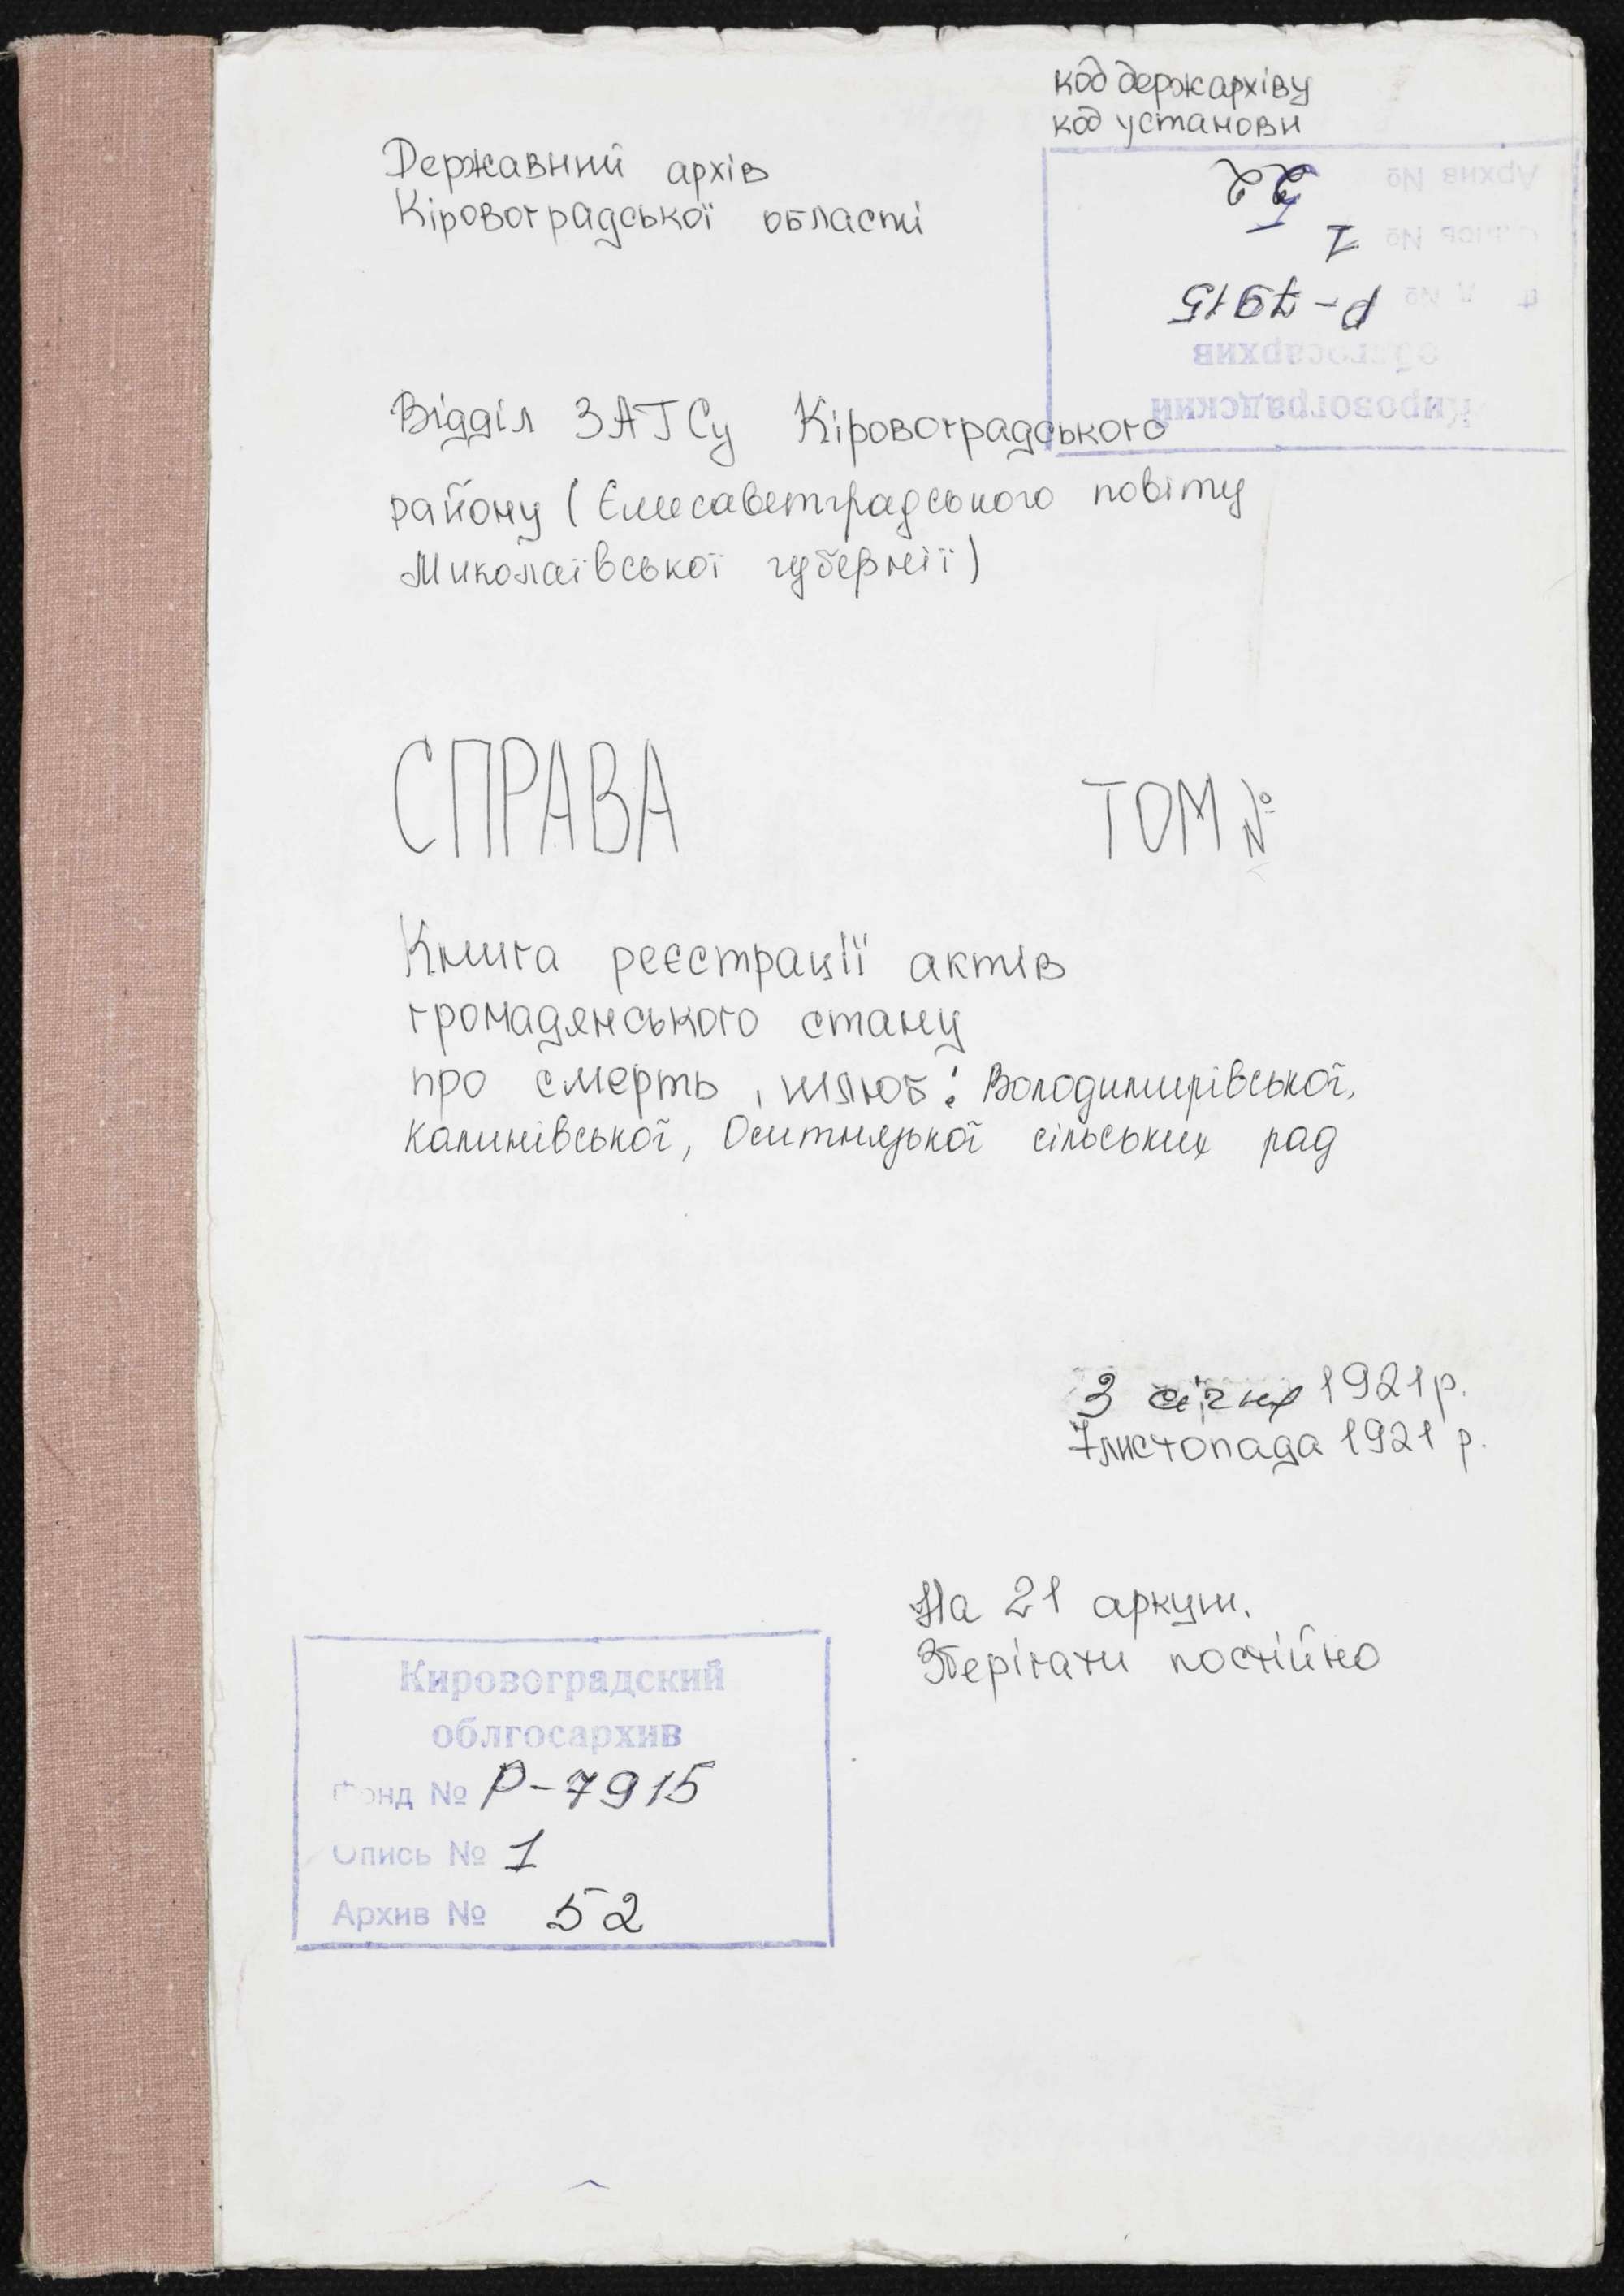 код держархіву
код установи
Державний архів
Кіровоградської області
Архив №
1
Р-7915
облгосархив
Кировоградский
Відділ ЗАГСу Кіровоградського
району (Єлисаветградського повіту
Миколаївської губернії)
СПРАВА ТОМ №
Книга реєстрації актів
громадянського стану
про смерть, шлюб: Володимирівської,
Калинівської, Оситнязької сільських рад
3 січня 1921 р.
7 листопада 1921 р.
На 21 аркуш.
Зберігати постійно
Кировоградский
облгосархив
Фонд № Р-7915
Опись № 1
Архив № 52